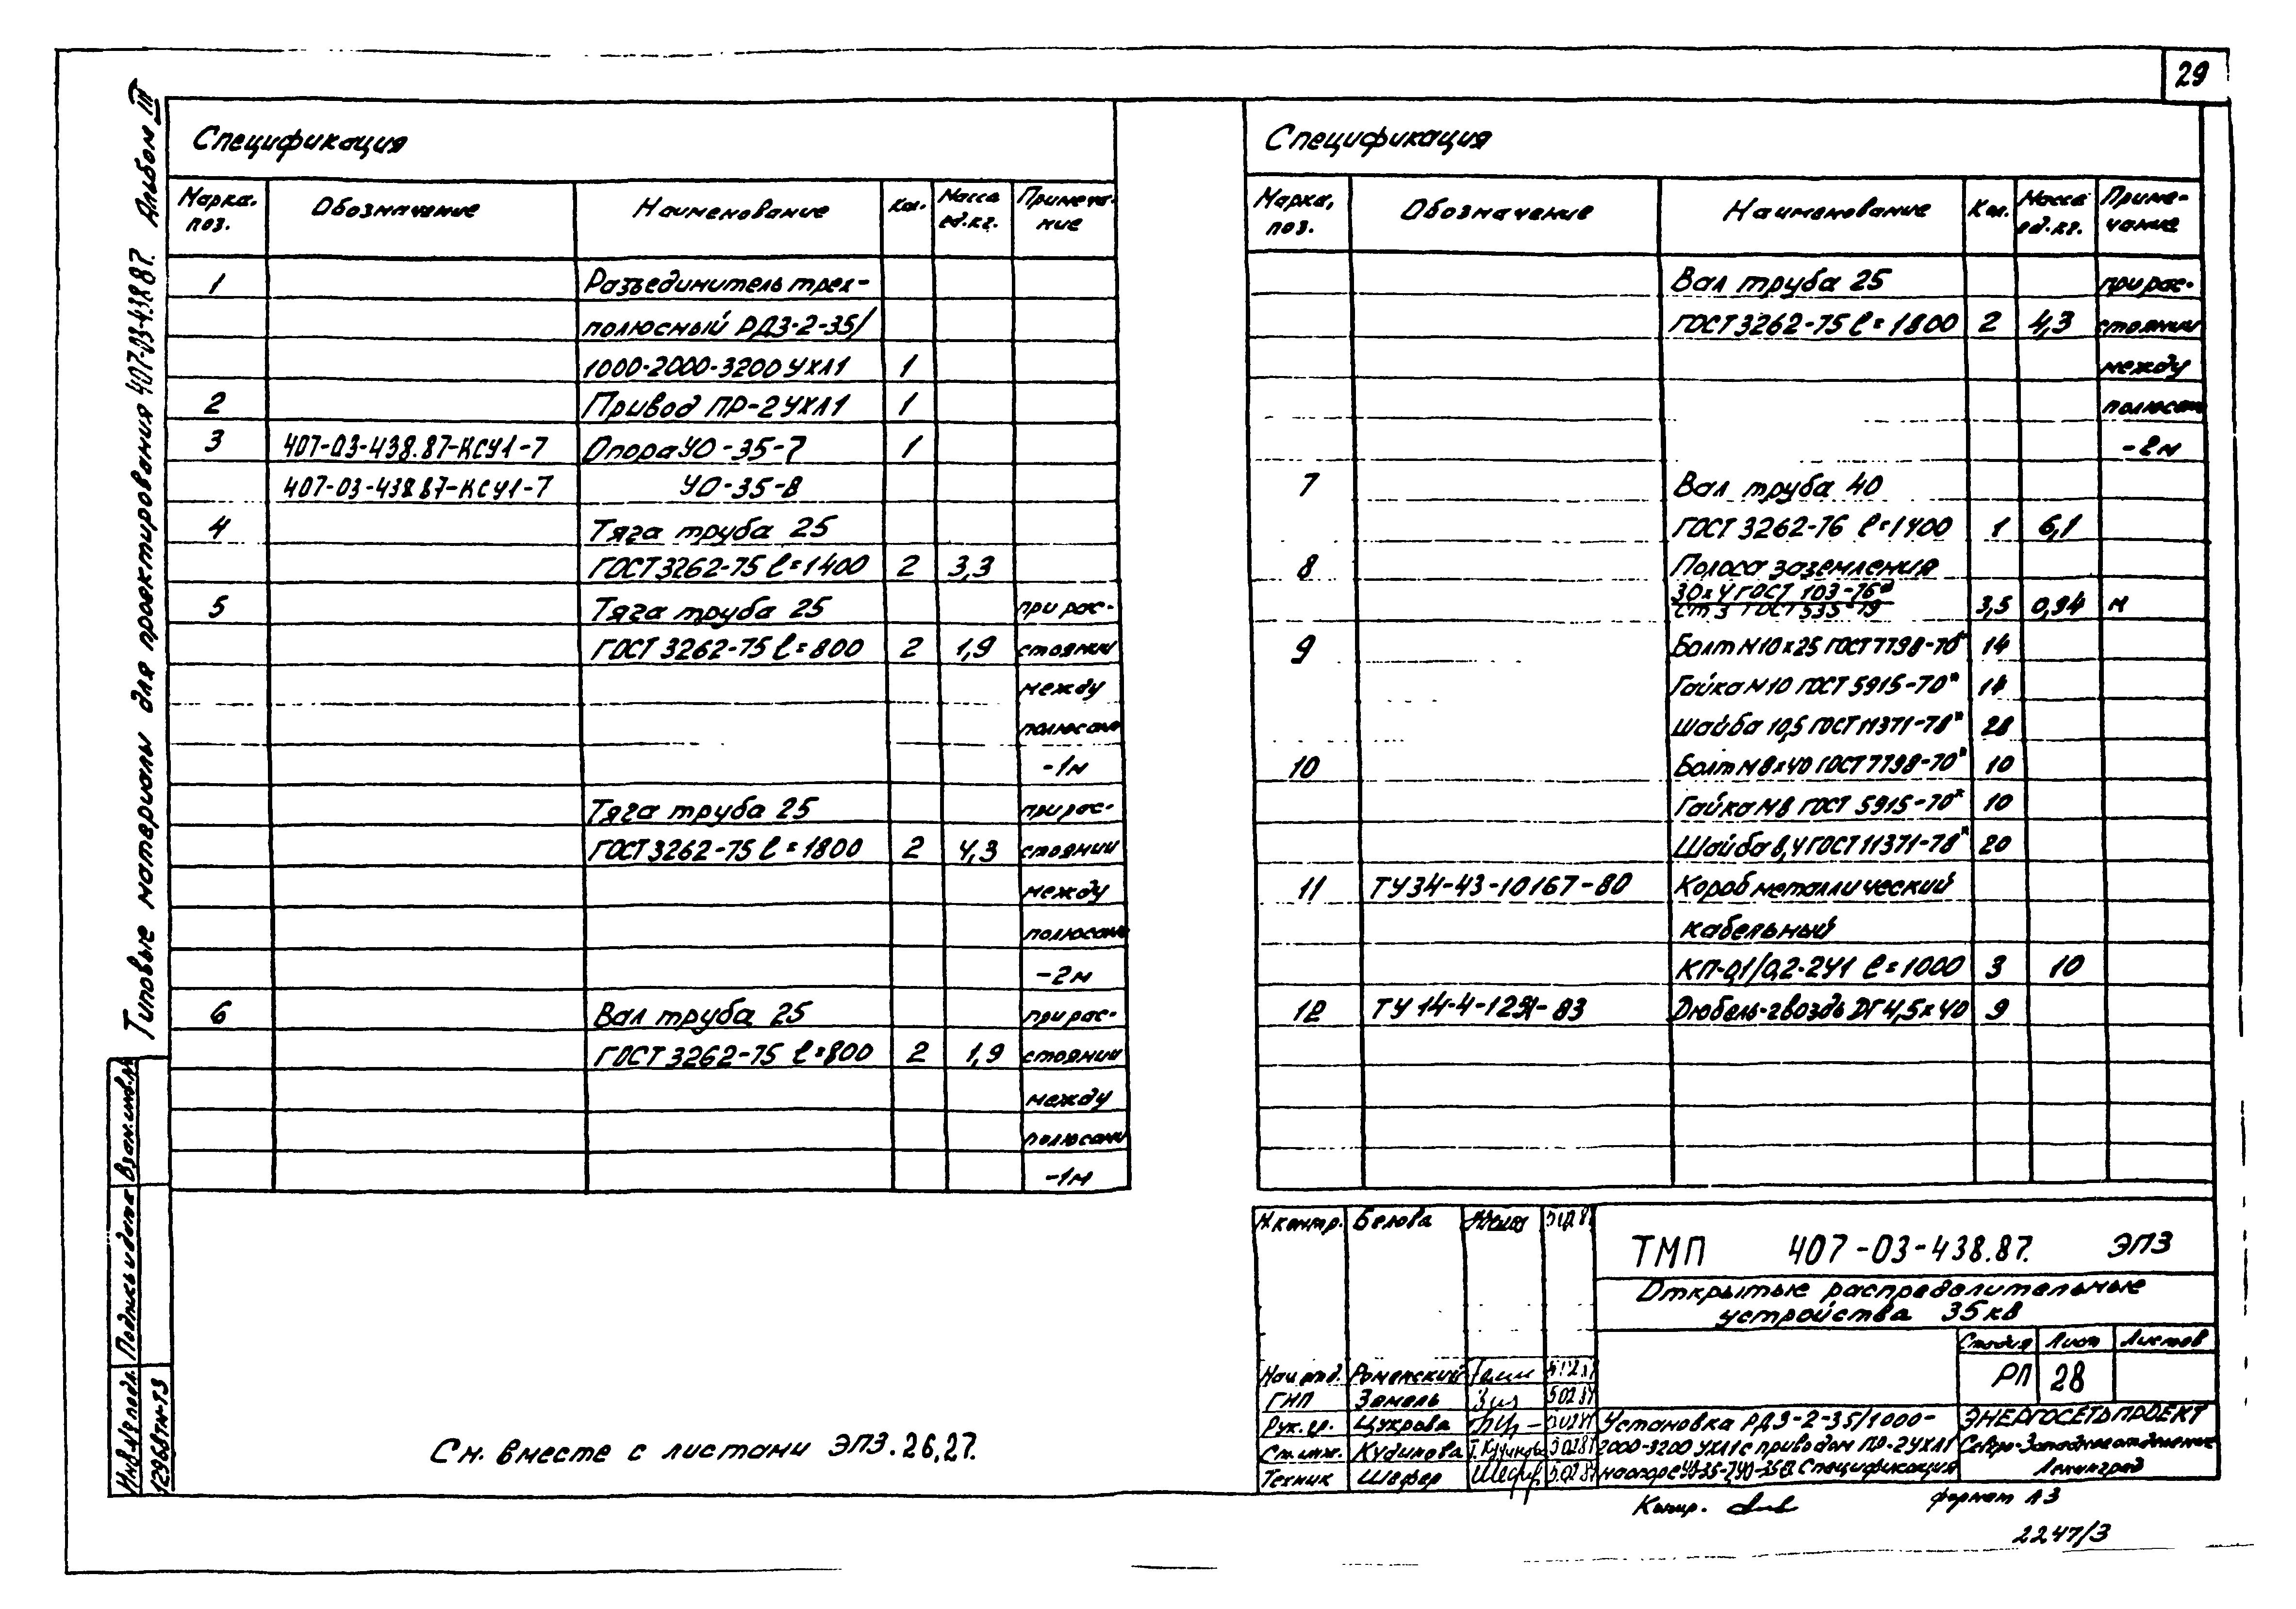 29
Типовые материалы для проектирования 407-03-438.87. Альбом III
Спецификация
Марка. поз. Обозначение Наименование Кол. Масса ед.кг. Примеча-ние
1 Разъединитель трех-
полюсный РДЗ-2-35/
1000-2000-3200 УХЛ1 1
2 Привод ПР-2 УХЛ1 1
3 407-03-438.87-КСУ1-7 Опора УО-35-7 1
407-03-438.87-КСУ1-7 УО-35-8
4 Тяга труба 25
ГОСТ 3262-75 ℓ=1400 2 3,3
5 Тяга труба 25 при рас-
ГОСТ 3262-75 ℓ=800 2 1,9 стоянии
между
полюсами
-1м
Тяга труба 25 при рас-
ГОСТ 3262-75 ℓ=1800 2 4,3 стоянии
между
полюсами
-2м
6 Вал труба 25 при рас-
ГОСТ 3262-75 ℓ=800 2 1,9 стоянии
между
полюсами
-1м
Спецификация
Марка, поз. Обозначение Наименование Кол. Масса ед.кг. Приме-чание
Вал труба 25 при рас-
ГОСТ 3262-75 ℓ=1800 2 4,3 стоянии
между
полюсами
-2м
7 Вал труба 40
ГОСТ 3262-76 ℓ=1400 1 6,1
8 Полоса заземления
30×4 ГОСТ 103-76*
Ст 3 ГОСТ 535-79 3,5 0,94 м
9 Болт М10×25 ГОСТ 7798-70* 14
Гайка М10 ГОСТ 5915-70* 14
Шайба 10,5 ГОСТ 11371-78* 28
10 Болт М8×40 ГОСТ 7798-70* 10
Гайка М8 ГОСТ 5915-70* 10
Шайба 8,4 ГОСТ 11371-78* 20
11 ТУ34-43-10167-80 Короб металлический
кабельный
КП-0,1/0,2-2У1 ℓ=1000 3 10
12 ТУ 14-4-1231-83 Дюбель-гвоздь ДГ 4,5×40 9
См. вместе с листами ЭПЗ.26,27.
Взам.инв.№
Подпись и дата
Инв.№ подл.
12968тм-т3
Н.контр. Белова
ТМП 407-03-438.87. ЭПЗ
Открытые распределительные
устройства 35 кВ
Стадия Лист Листов
РП 28
Нач.отд. Роменский
ГИП Земель
Рук.гр. Цукрова
Ст.инж. Кудинова
Техник Шефер
Установка РДЗ-2-35/1000-
2000-3200 УХЛ1 с приводом ПР-2УХЛ1
на опоре УО-35-7, УО-35-8. Спецификация
ЭНЕРГОСЕТЬПРОЕКТ
Северо-Западное отделение
Ленинград
Копир.
формат А3
2247/3